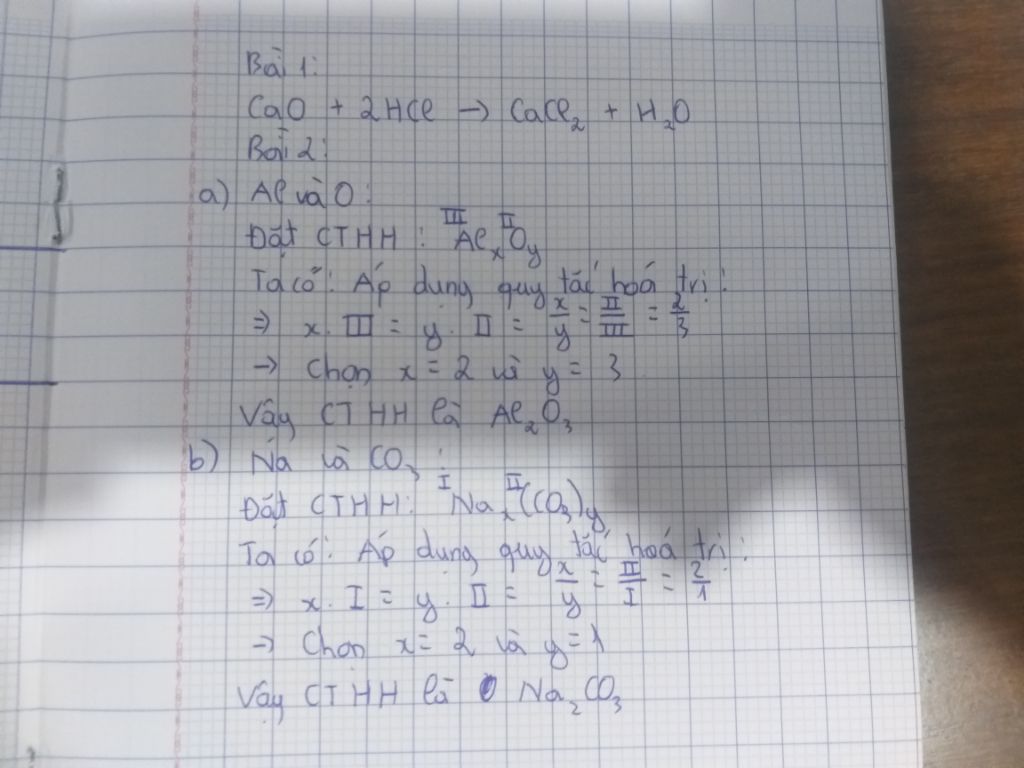 Bài 1:
CaO + 2HCl → CaCl₂ + H₂O
Bài 2:
a) Al và O:
Đặt CTHH: Al(III)ₓO(II)ᵧ
Ta có: Áp dụng quy tắc hoá trị:
⇒ x. III = y. II = x/y = II/III = 2/3
→ Chọn x = 2 và y = 3
Vậy CTHH là Al₂O₃
b) Na và CO₃:
Đặt CTHH: Na(I)ₓ(CO₃)(II)ᵧ
Ta có: Áp dụng quy tắc hoá trị:
⇒ x. I = y. II = x/y = II/I = 2/1
→ Chọn x = 2 và y = 1
Vậy CTHH là Na₂CO₃